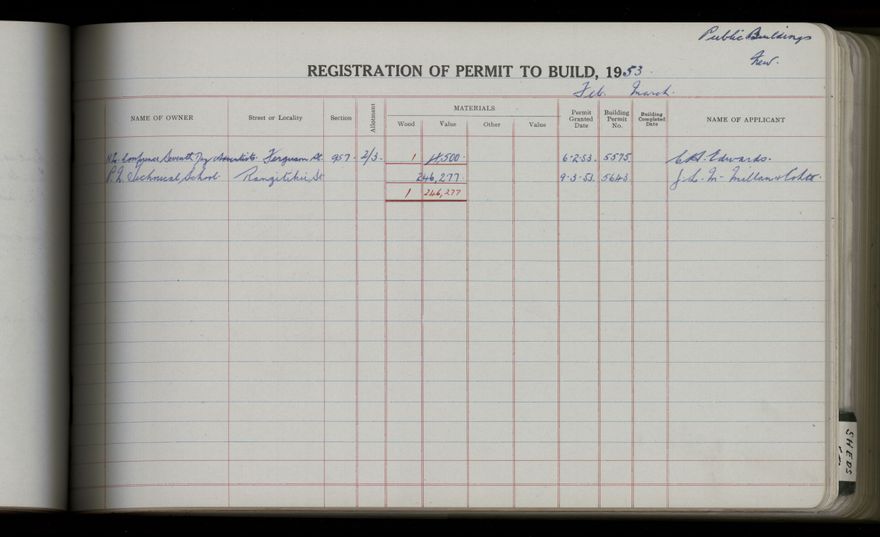 Public Buildings
New.
REGISTRATION OF PERMIT TO BUILD, 1953.
Feb. March.
NAME OF OWNER Street or Locality Section Allotment MATERIALS Wood Value Other Value Permit Granted Date Building Permit No. Building Completed Date NAME OF APPLICANT
Conference Seventh Day Adventists Ferguson St. 957. 2/3. 1 500. 6.2.53. 5575 Edwards.
P.N. Technical School Rangitikei St 246,277. 9.3.53. 5643
1 246,277
SHEDS